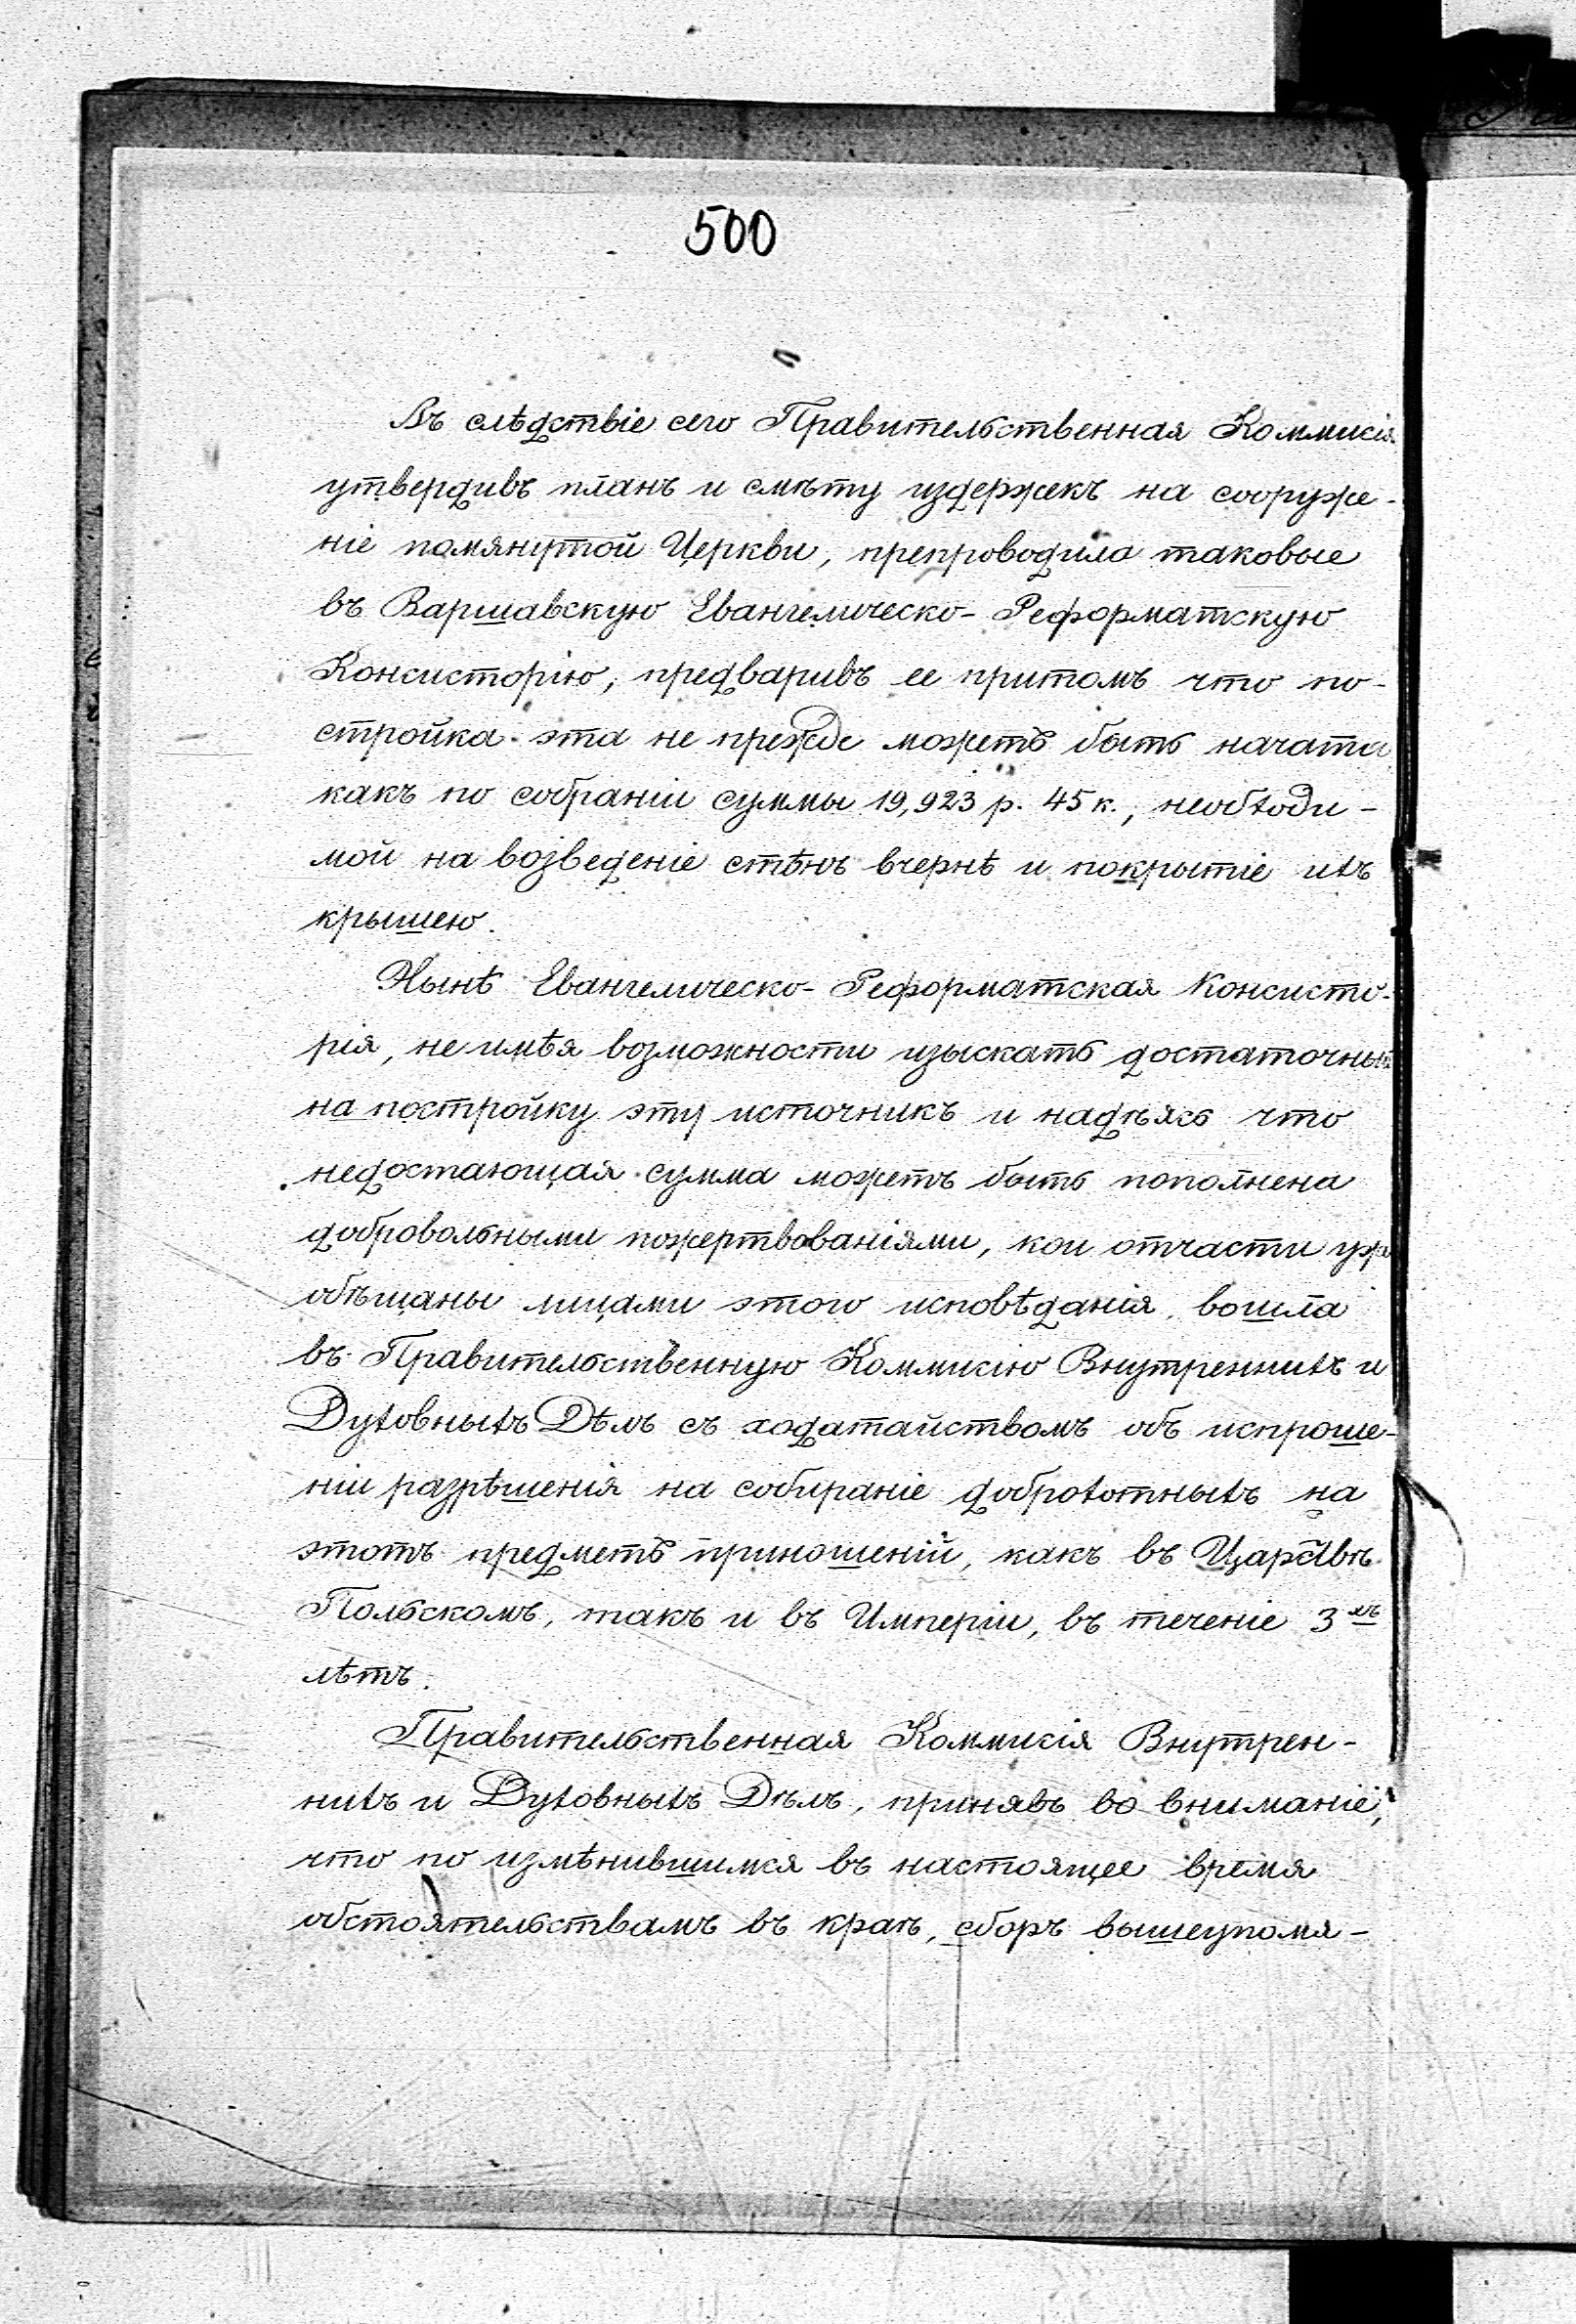 500
Въ слѣдствіе сего Правительственная Коммисія
утвердивъ планъ и смѣту издержекъ на сооруже-
ніе помянутой Церкви, препроводила таковые
въ Варшавскую Евангелическо-Реформатскую
Консисторію, предваривъ ее притомъ что по-
стройка эта не прежде можетъ быть начата
какъ по собраніи суммы 19,923 р. 45 к., необходи-
мой на возведеніе стѣнъ вчернѣ и покрытіе ихъ
крышею.
Нынѣ Евангелическо-Реформатская Консисто-
рія, не имѣя возможности изыскать достаточный
на постройку эту источникъ и надѣясь что
недостающая сумма можетъ быть пополнена
добровольными пожертвованіями, кои отчасти уже
обѣщаны лицами этого исповѣданія, вошла
въ Правительственную Коммисію Внутреннихъ и
Духовныхъ Дѣлъ съ ходатайствомъ объ испроше-
ніи разрѣшенія на собираніе доброхотныхъ на
этотъ предметъ приношеній, какъ въ Царствѣ
Польскомъ, такъ и въ Имперіи, въ теченіе 3хъ
лѣтъ.
Правительственная Коммисія Внутрен-
нихъ и Духовныхъ Дѣлъ, принявъ во вниманіе,
что по измѣнившимся въ настоящее время
обстоятельствамъ въ краѣ, сборъ вышеупомя-